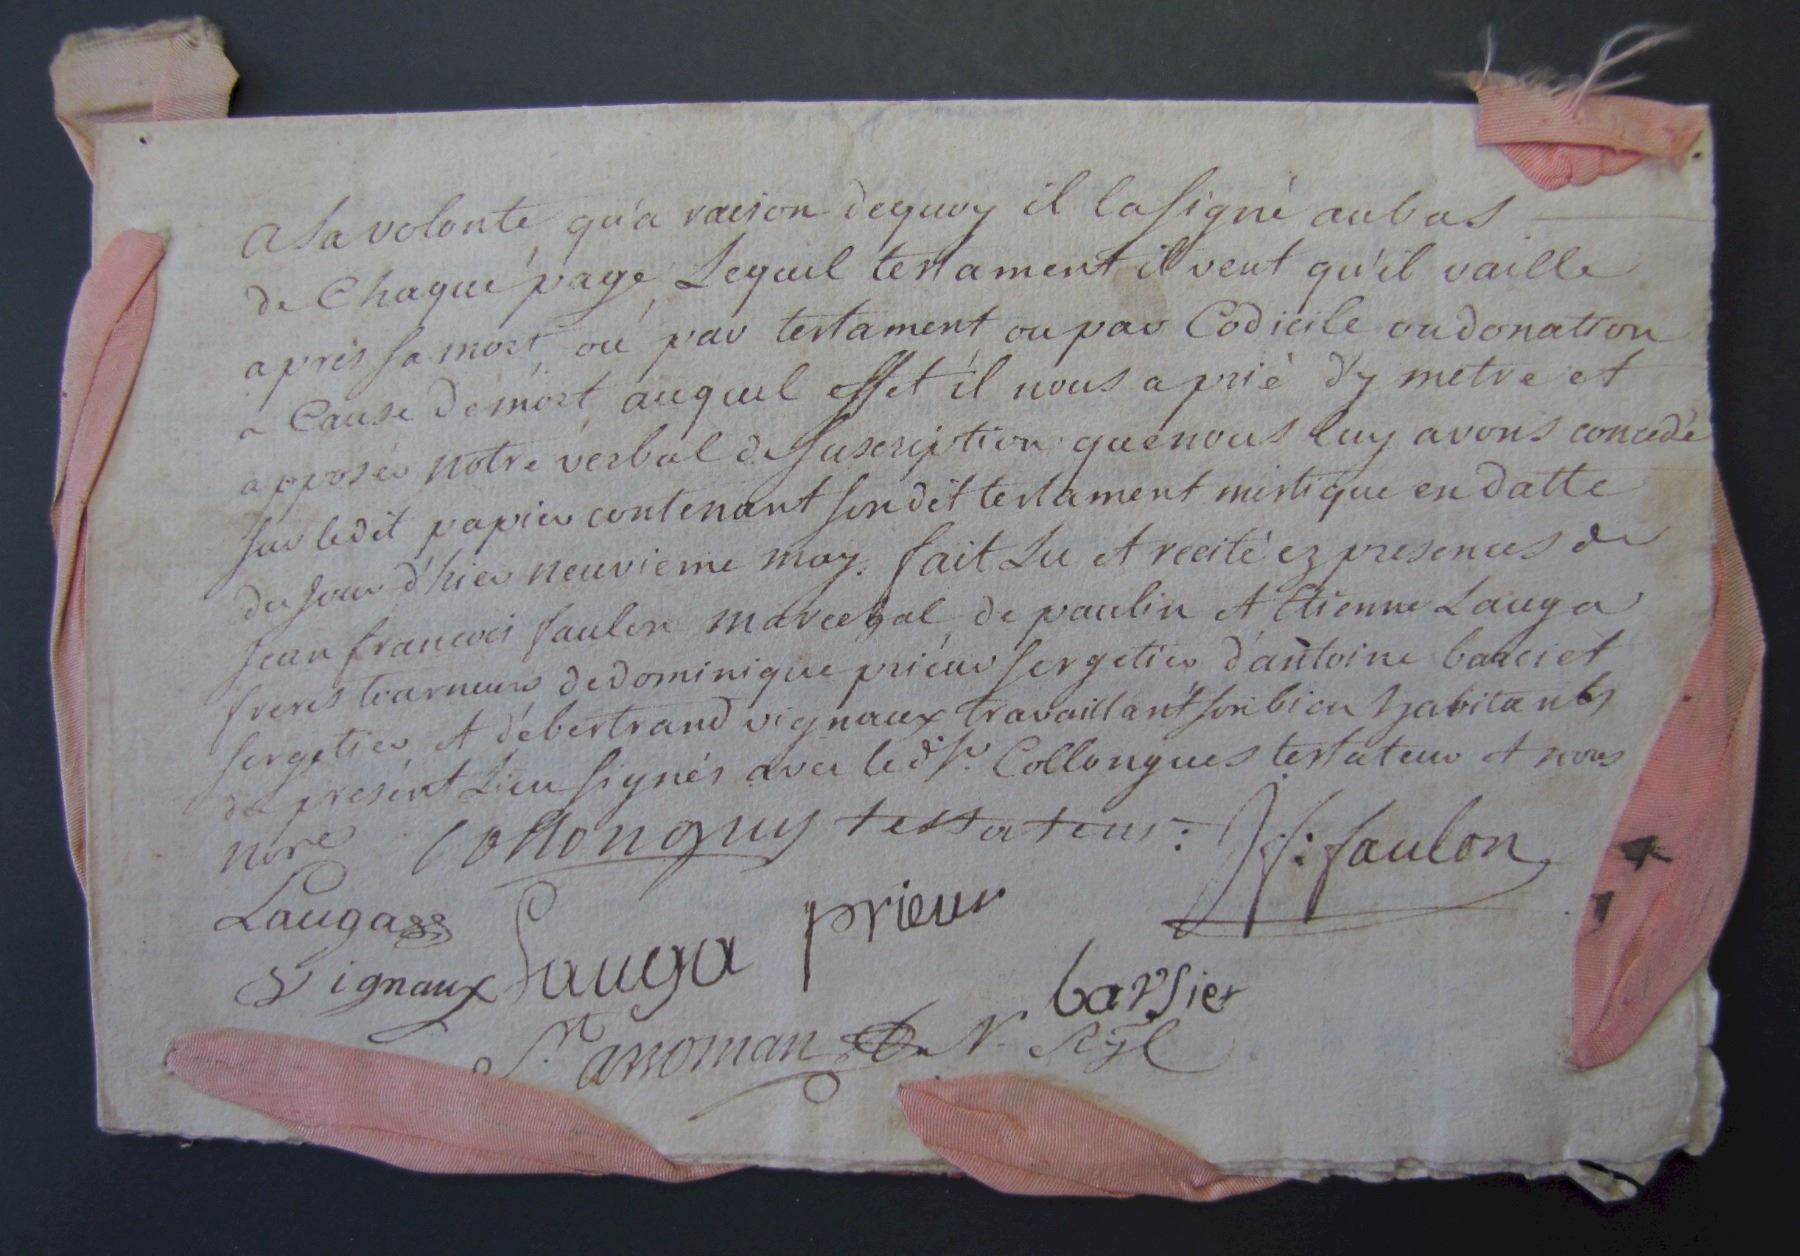 a sa volonté qu'a raison dequoy il la signé au bas
de Chaque page, Lequel testament il veut qu'il vaille
apres sa mort, ou par testament ou par Codicile ou donation
a Cause de mort, auquel effet il nous a prié d'y metre et
apposer notre verbal de suscription que nous luy avons concedé
sur ledit papier contenant son dit testament mistique en datte
du jour d'hier neuvieme may. fait Lu et recité ez presences de
Jean francois faulon marechal de paulin et Etienne Lauga
freres tourneurs de dominique prieur sergetier d'antoine
sergetier et de bertrand vignaux travaillant son bien habitants
du present Lieu signés avec le dt sr. Collongues testateur et nous
nore
Collongues testateur: J. f: faulon
Lauga
Lauga prieur
vignaux
barsier
St arroman Nre Royl